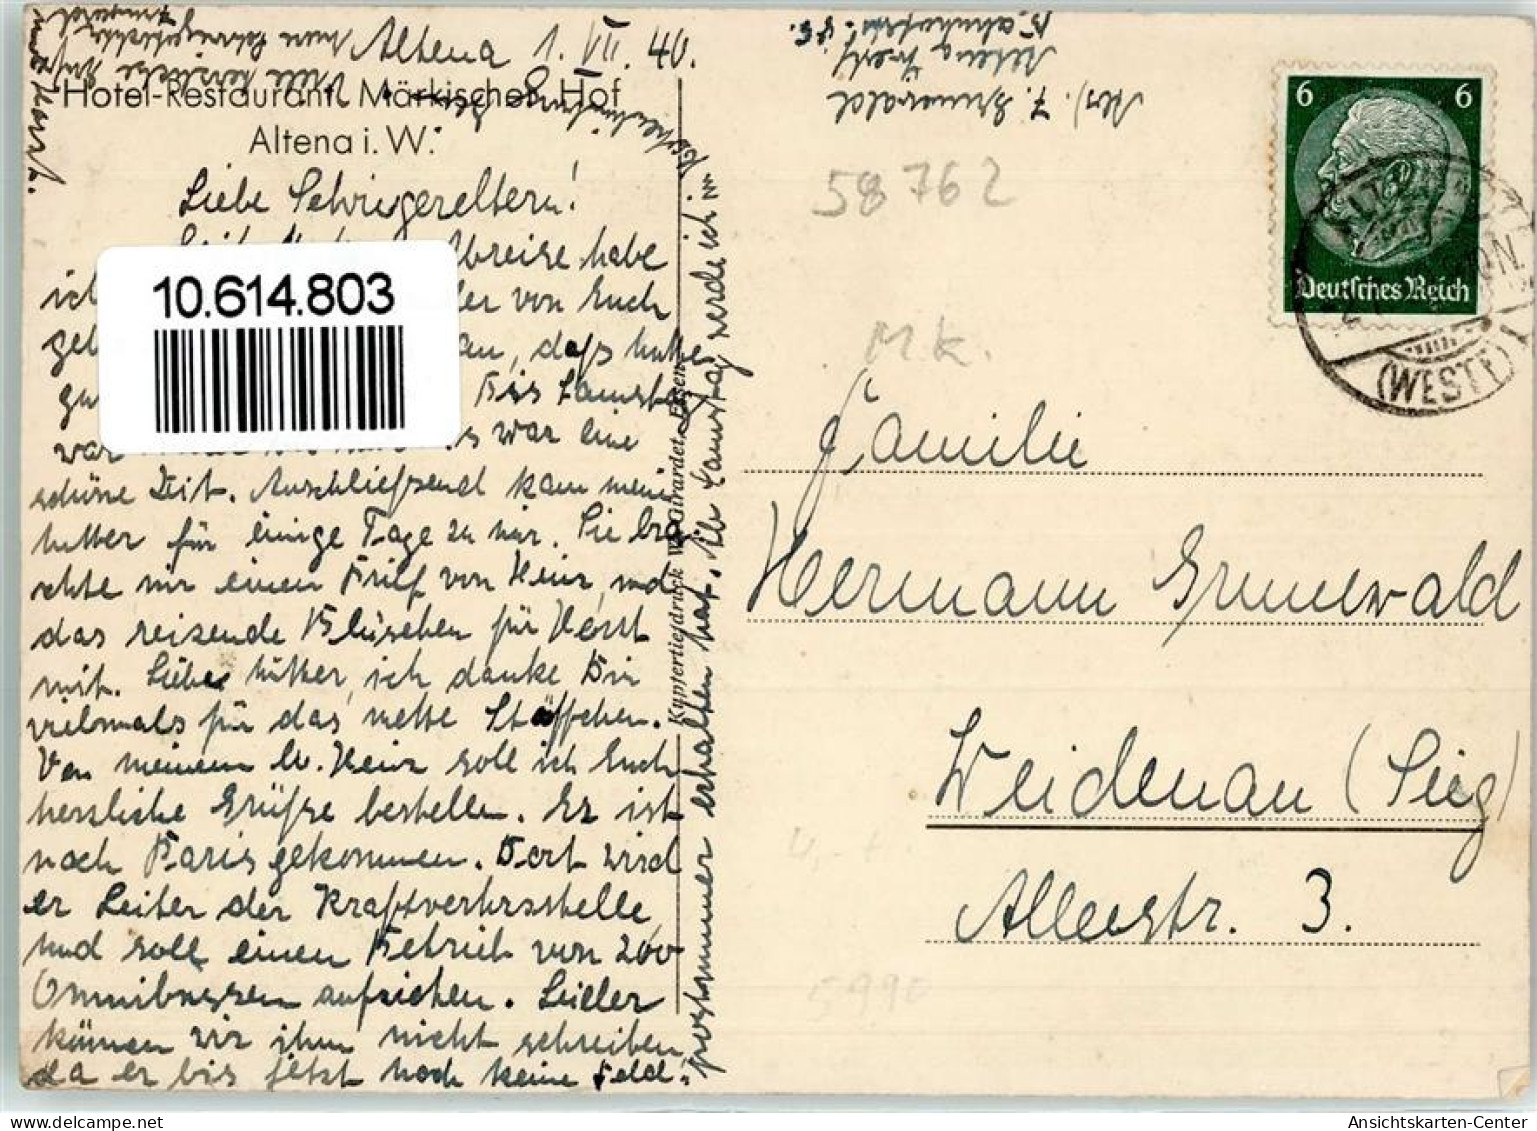 Altena 1. VII. 40.
Hotel-Restaurant Märkischer Hof
Altena i. W.
Liebe Schwiegereltern!
Abreise habe
ich von Euch
daß Mutter
Bis Samstag
war es war eine
schöne Zeit. Anschließend kam meine
Mutter für einige Tage zu mir. Sie bra-
chte mir einen Brief von Heinz und
das reizende Blüschen für Horst
mit. Liebe Mutter, ich danke Dir
vielmals für das nette Stöffchen.
Von meinem lb. Heinz soll ich Euch
herzliche Grüße bestellen. Er ist
nach Paris gekommen. Dort wird
er Leiter der Kraftverkehrsstelle
und soll einen Betrieb von 200
Omnibussen aufziehen. Leider
können wir ihm nicht schreiben,
da er bis jetzt noch keine Feld-
postnummer erhalten hat. Samstag werde ich
Viele herzliche Grüße
und Horst.
Kupfertiefdruck W. Girardet, Essen
Abs. J. Grunewald
Altena Westf.
Bahnhofstr.
58762
M.K.
6 6
Deutsches Reich
(WESTF)
Familie
Hermann Grunewald
Weidenau (Sieg)
Alleestr. 3.
5990
10.614.803
Ansichtskarten-Center